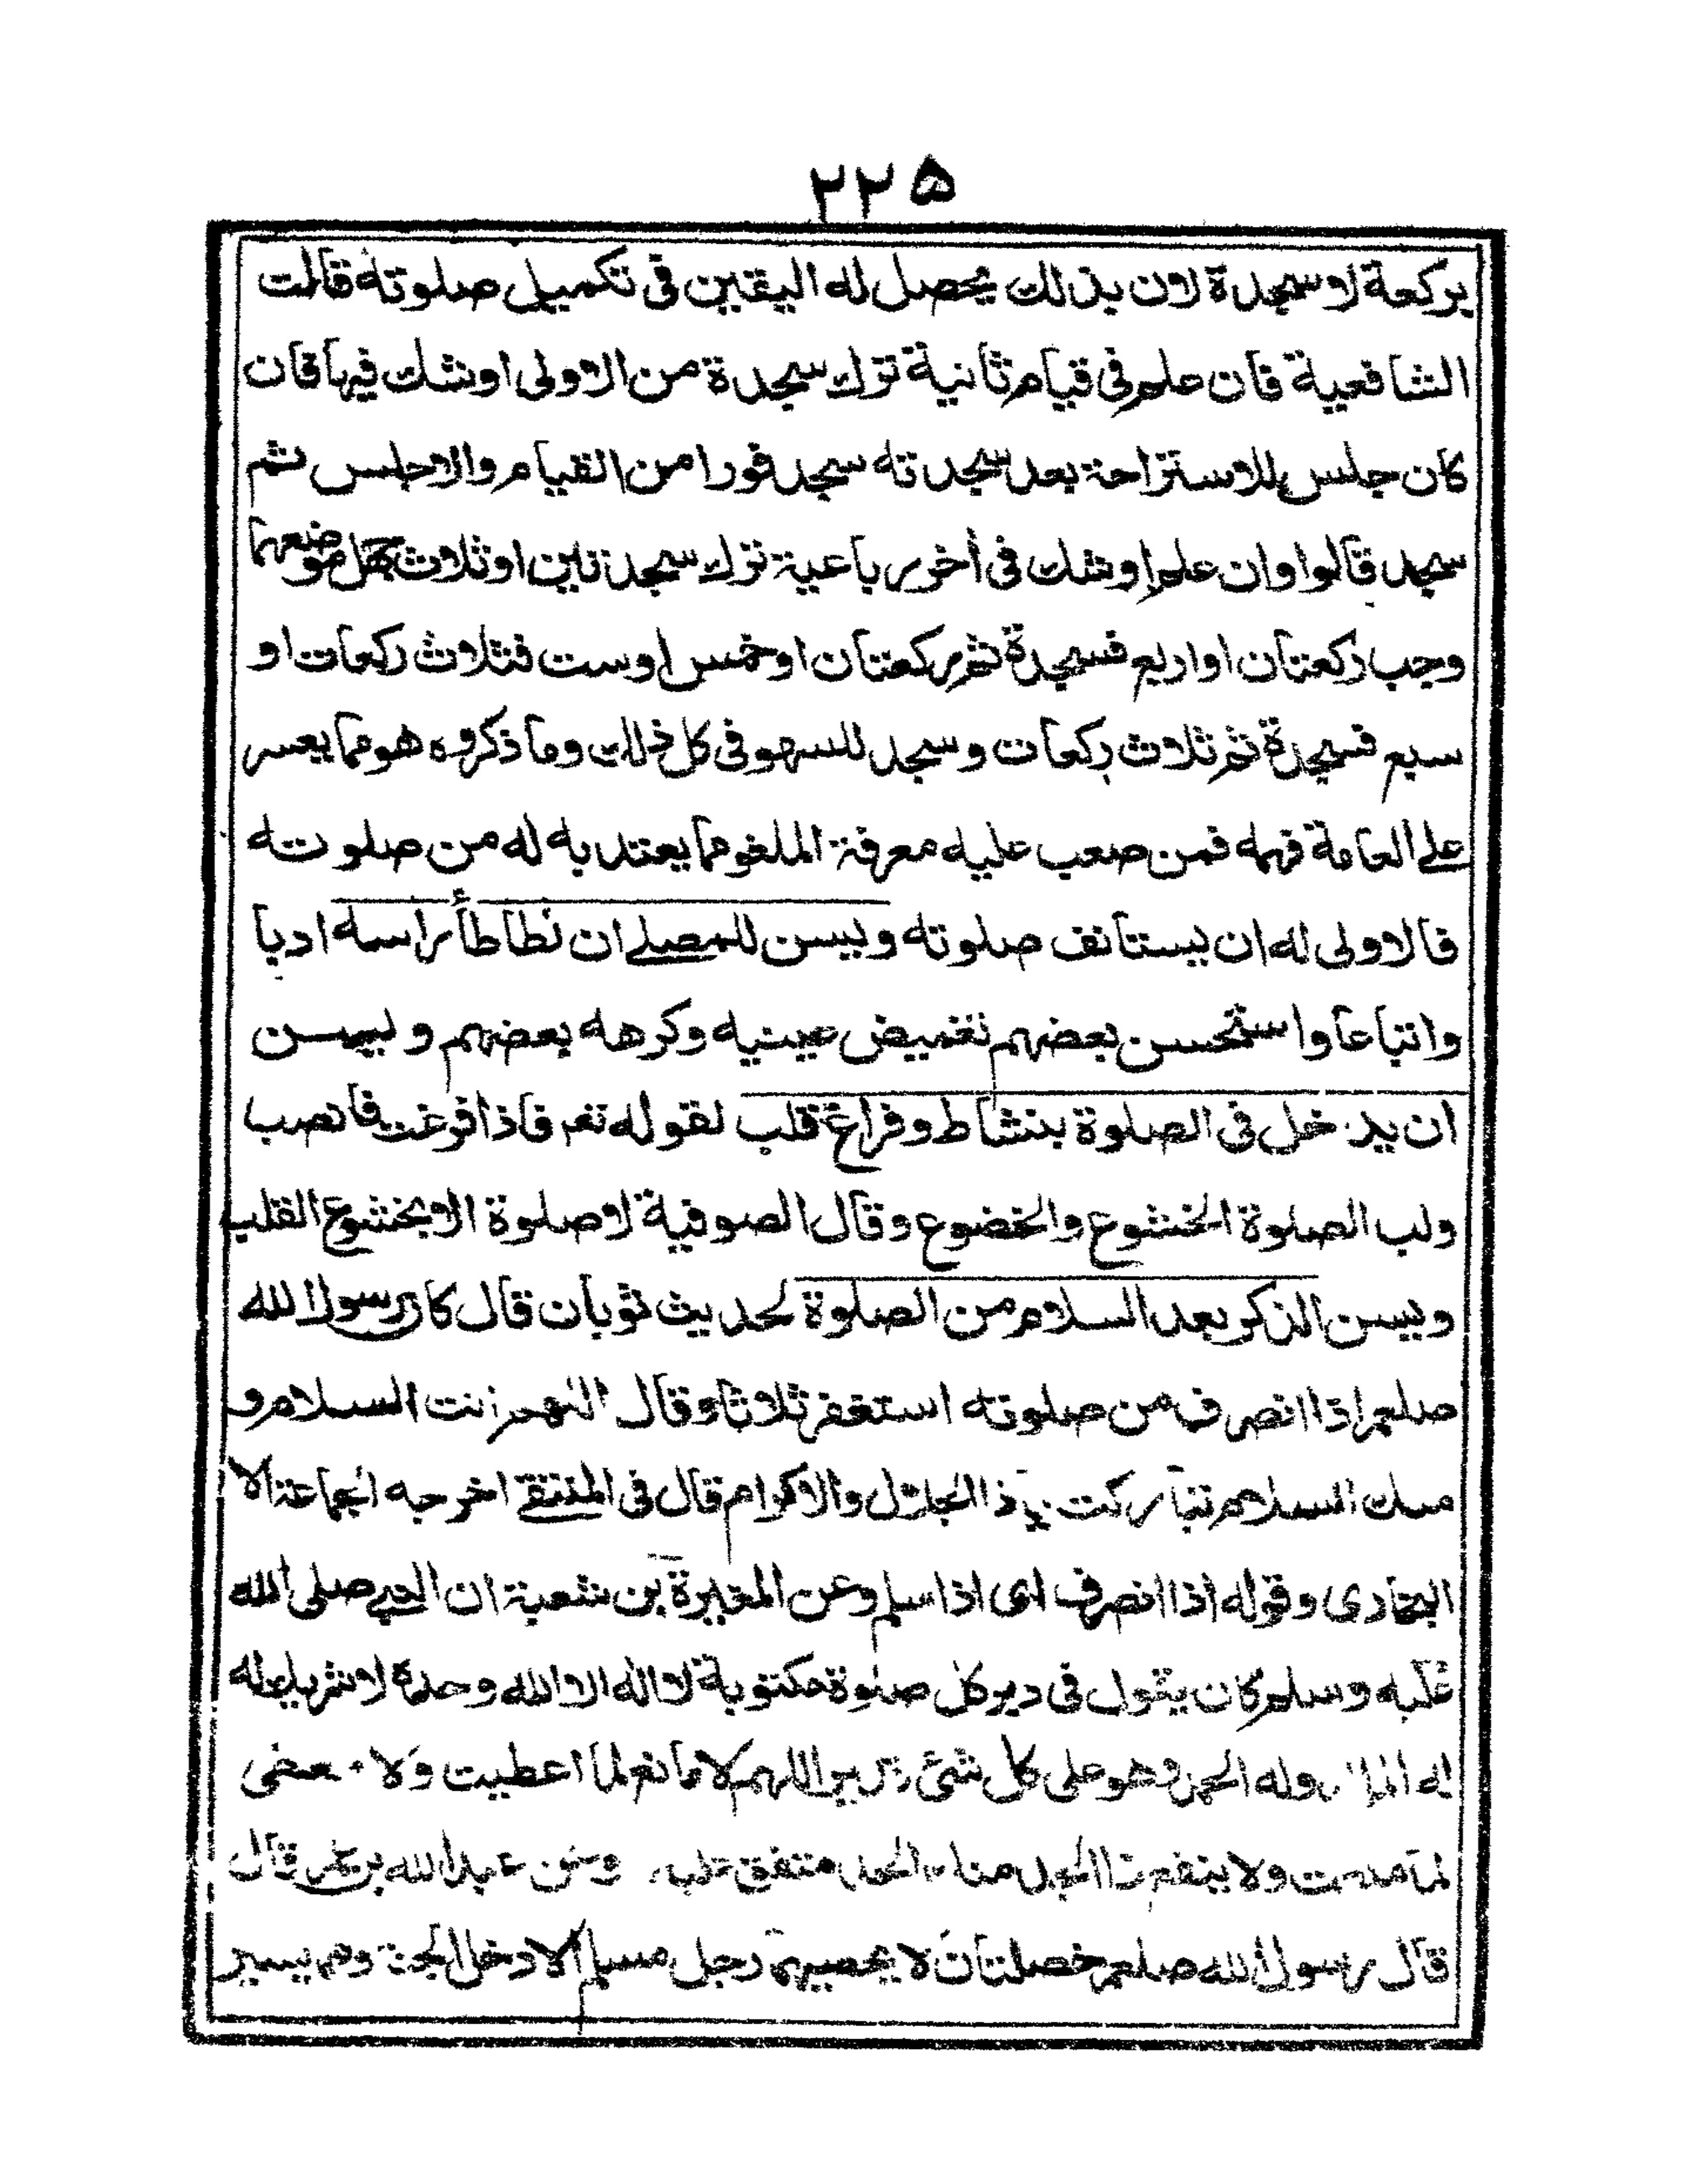 ٢٢٥
بركعة لا سجدة لان بذلك يحصل له اليقين فى تكميل صلوته قالت
الشافعية فان علم فى قيام ثانية ترك سجدة من الاولى او شك فيها فان
كان جلس للاستراحة بعد سجدته سجد فورا من القيام والا جلس ثم
سجد قالوا وان علم او شك فى أخر رباعية ترك سجدتين او ثلاث جهل موضعهما
وجب ركعتان او اربع فسجدة ثم ركعتان او خمس او ست فثلاث ركعات او
سبع فسجدة ثم ثلاث ركعات وسجد للسهو فى كل ذلك وما ذكروه هو مما يعسر
على العامة فهمه فمن صعب عليه معرفة الملغو مما يعتد به له من صلوته
فالاولى له ان يستانف صلوته ويسن للمصلے ان نطاطأ راسه ادبا
واتباعا واستحسن بعضهم تغميض عينيه وكرهه بعضهم ويسن
ان يدخل فى الصلوة بنشاط وفراغ قلب لقوله تعم فاذا فرغت فانصب
ولب الصلوة الخشوع والخضوع وقال الصوفية لا صلوة الا بخشوع القلب
ويسن الذكر بعد السلام من الصلوة لحديث ثوبان قال كان رسول الله
صلعم اذا انصرف من صلوته استغفر ثلاثا وقال اللهم انت السلام و
منك السلام تباركت يا ذا الجلال والاكرام قال فى المنتقے اخرجه الجماعة الا
البخارى وقوله اذا انصرف اى اذا سلم وعن المغيرة بن شعبة ان النبے صلى الله
عليه وسلم كان يقول فى دبر كل صلوة مكتوبة لا اله الا الله وحده لا شريك له
له الملك وله الحمد وهو على كل شئ قدير اللهم لا مانع لما اعطيت ولا معطى
لما منعت ولا ينفع ذا الجد منك الجد متفق عليه وعن عبد الله بن عمر قال
قال رسول الله صلعم خصلتان لا يحصيهما رجل مسلم الا دخل الجنة وهما يسير